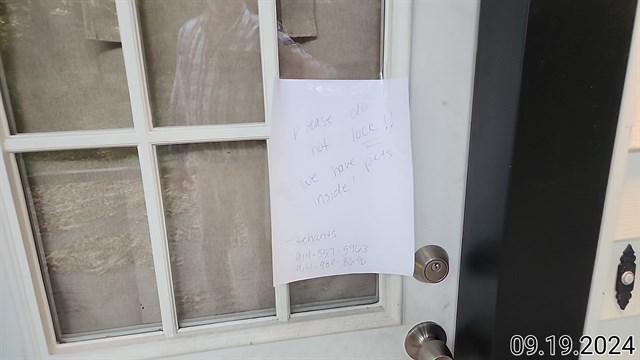 Please do
not lock!!
we have pets
inside!
-tenants
914-557-5963
09.19.2024